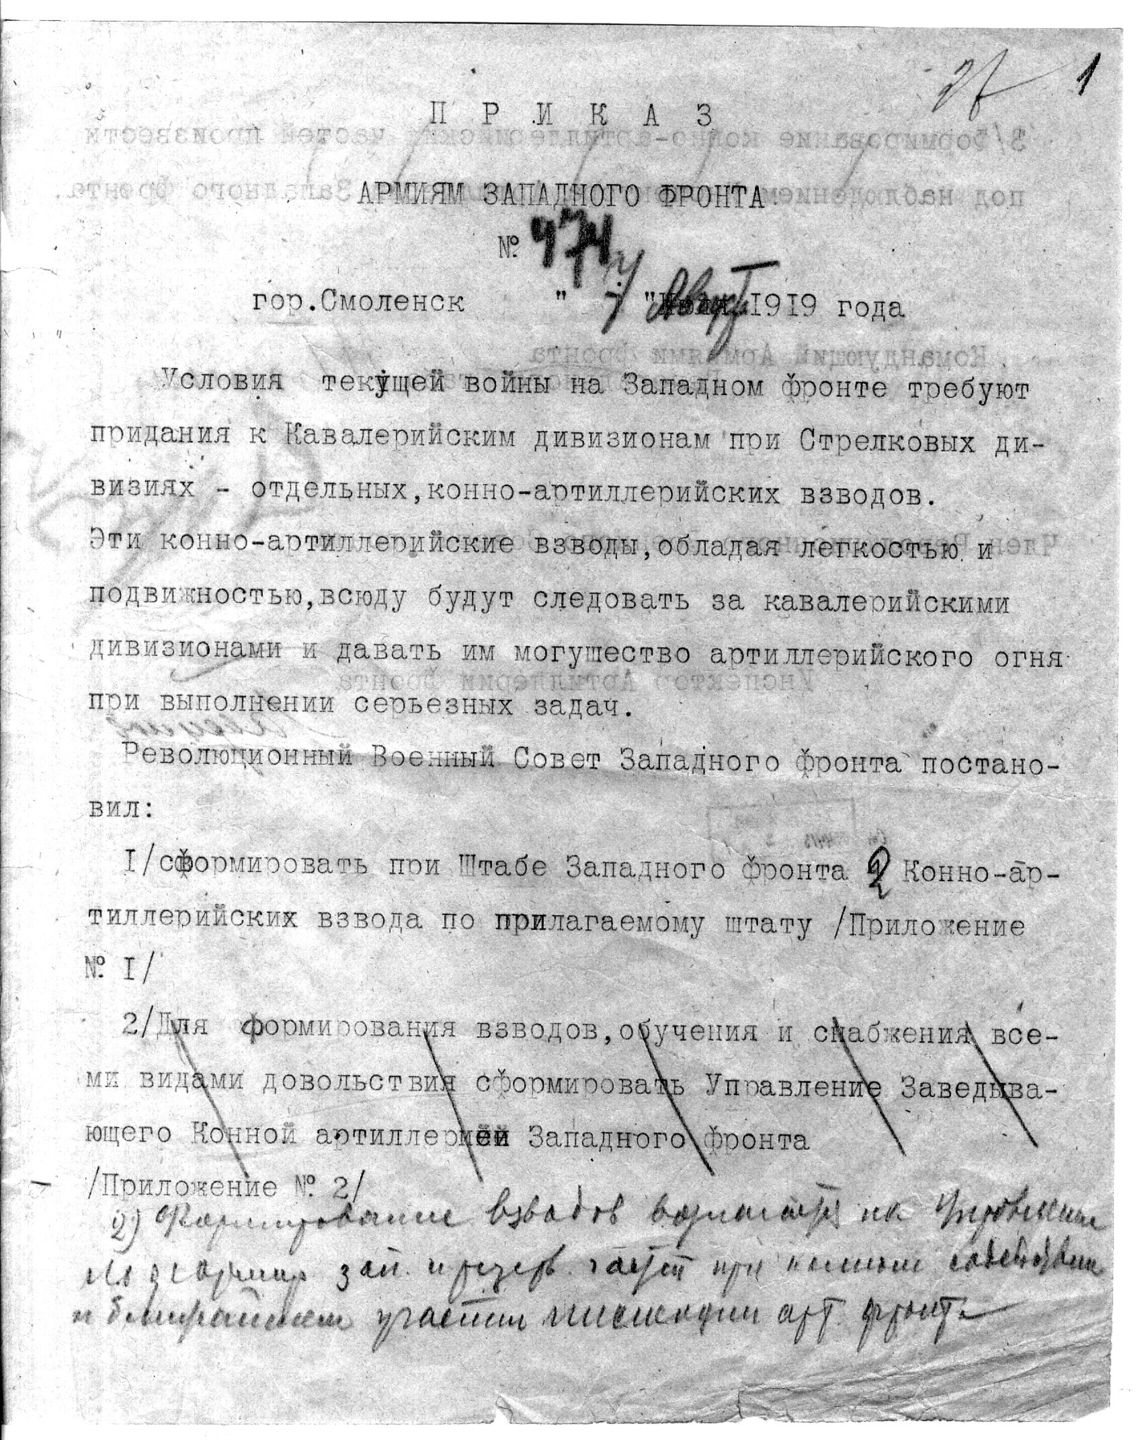 1
П Р И К А З
АРМИЯМ ЗАПАДНОГО ФРОНТА
№ 974
гор.Смоленск " 7 " Август 1919 года
Условия текущей войны на Западном фронте требуют
придания к Кавалерийским дивизионам при Стрелковых ди-
визиях - отдельных,конно-артиллерийских взводов.
Эти конно-артиллерийские взводы,обладая легкостью и
подвижностью,всюду будут следовать за кавалерийскими
дивизионами и давать им могушество артиллерийского огня
при выполнении серьезных задач.
Революционный Военный Совет Западного фронта постано-
вил:
I/сформировать при Штабе Западного фронта 2 Конно-ар-
тиллерийских взвода по прилагаемому штату /Приложение
№ I/
2/Для формирования взводов,обучения и снабжения все-
ми видами довольствия сформировать Управление Заведыва-
ющего Конной артиллерией Западного фронта
/Приложение № 2/
2) Формирование взводов возлагается на Управление
по формир зап. частей при полном содействии
и ближайшем участии инспекции арт. фронта